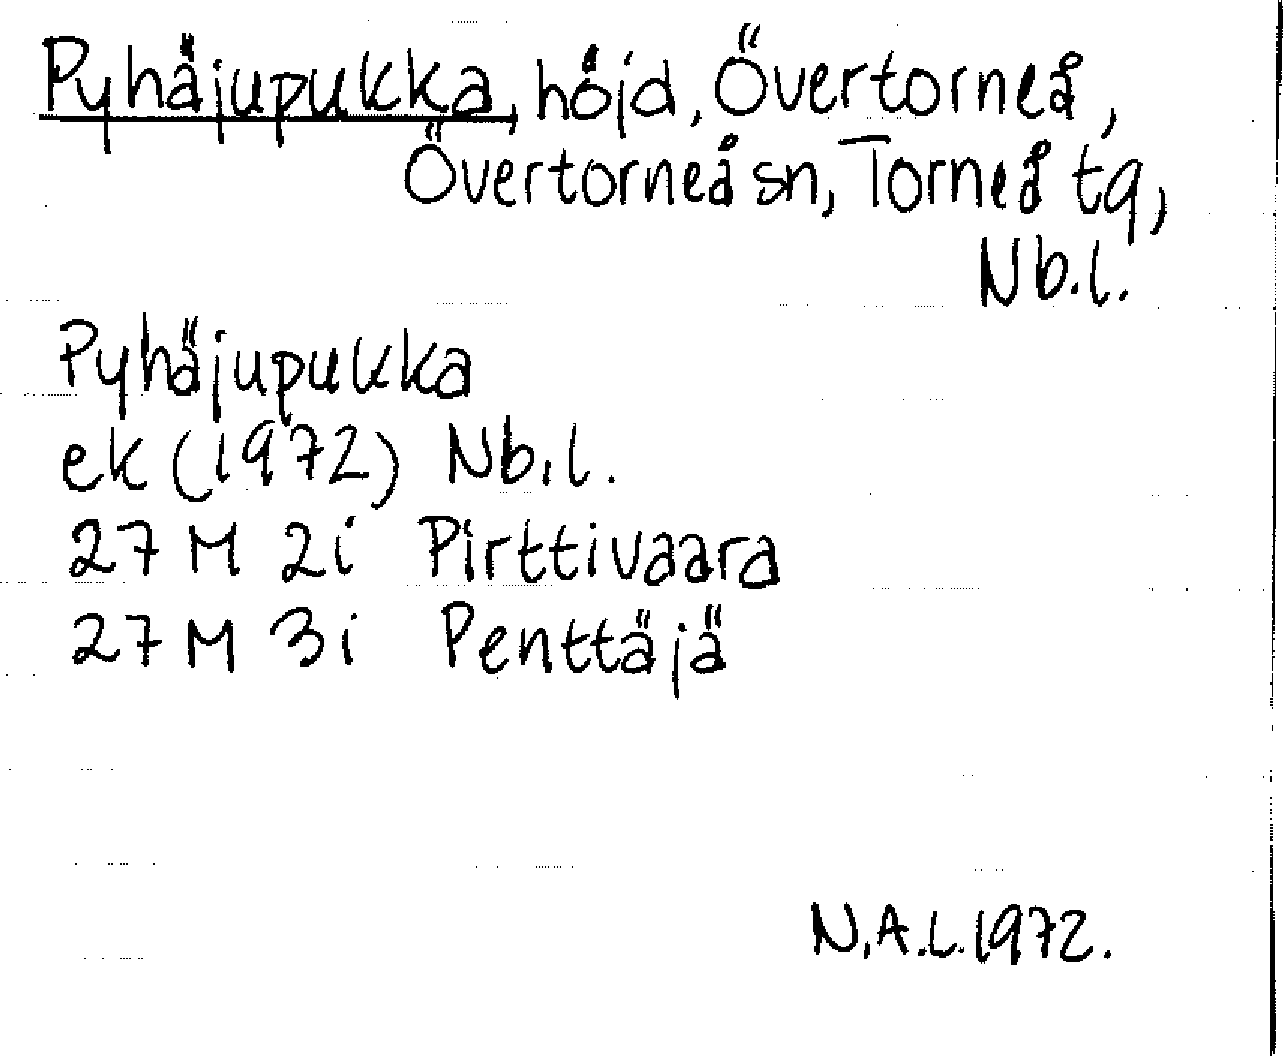 Pyhäjupukka, höjd, Övertorneå,
Övertorneå sn, Torneå tg,
Nb.l.
Pyhäjupukka
ek (1972) Nb.l.
27 M 2i Pirttivaara
27 M 3i Penttäjä
N.A.L. 1972.